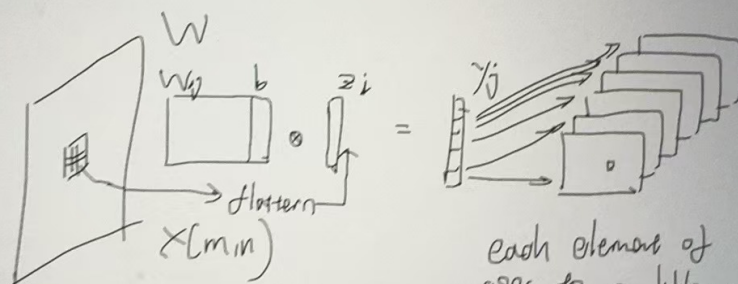 W
Wij b zi = yj
flattern
X(m,n)
each element of